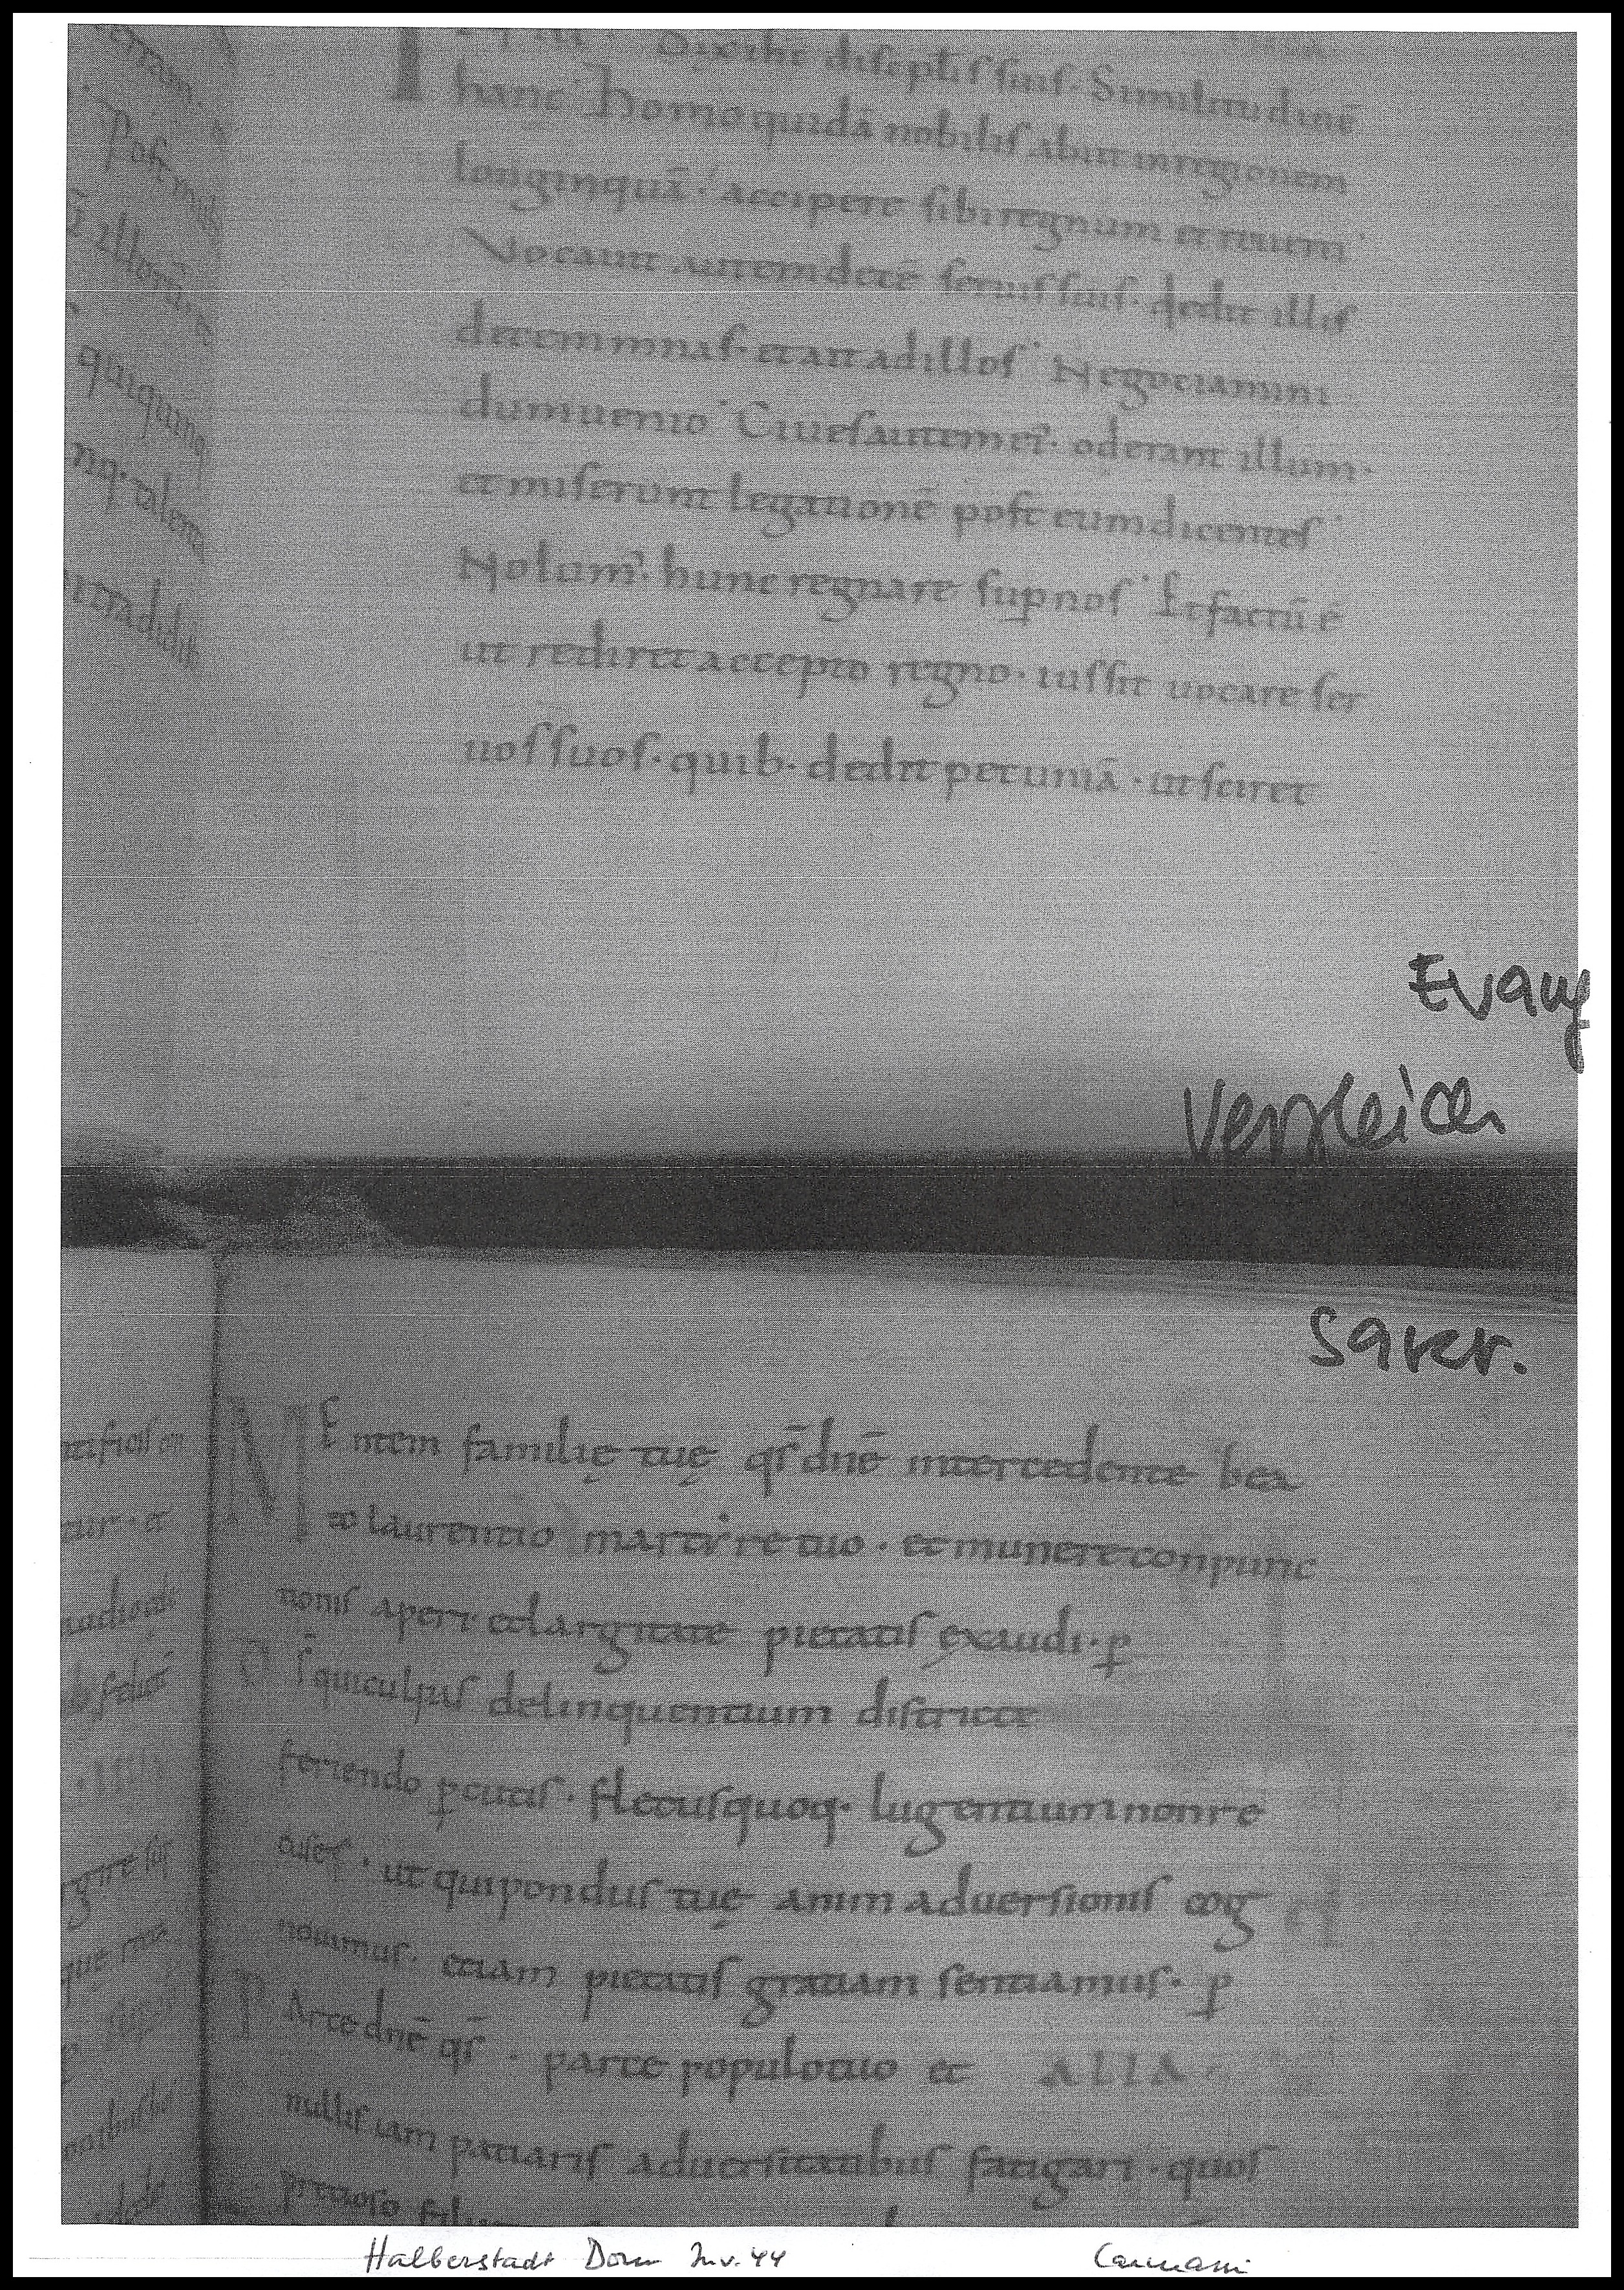 Dixit ihc disciptis suis. Similitudinē
hanc. Homo quidā nobilis abiit in regionem
longinquā. accipere sibi regnum et reuerti.
Vocauit autem decē seruis suis. dedit illis
decem mnas. et ait ad illos. Negociamini
dum uenio. Ciues autem ei. oderant illum.
et miserunt legationē post eum dicentes.
Nolum. hunc regnare sup nos. Et factū ē
ut rediret accepto regno. iussit uocare ser
uos suos. quib. dedit pecuniā. ut sciret
Evang
Vergleich
Sacr.
Mentem familię tuę qs dnē intercedente bea
to laurentio martyre tuo. et munere conpunc
tionis aperi. et largitate pietatis exaudi. p
Ds qui culpis delinquentium districte
feriendo pcutis. fletus quoq. lugentium non re
cuses. ut qui pondus tuę animaduersionis cog
nouimus. etiam pietatis gratiam sentiamus. p
Parce dnē qs. parce populo tuo et ALIA.
nullis iam patiaris aduersitatibus fatigari. quos
pretioso
Halberstadt Dom Inv. 44